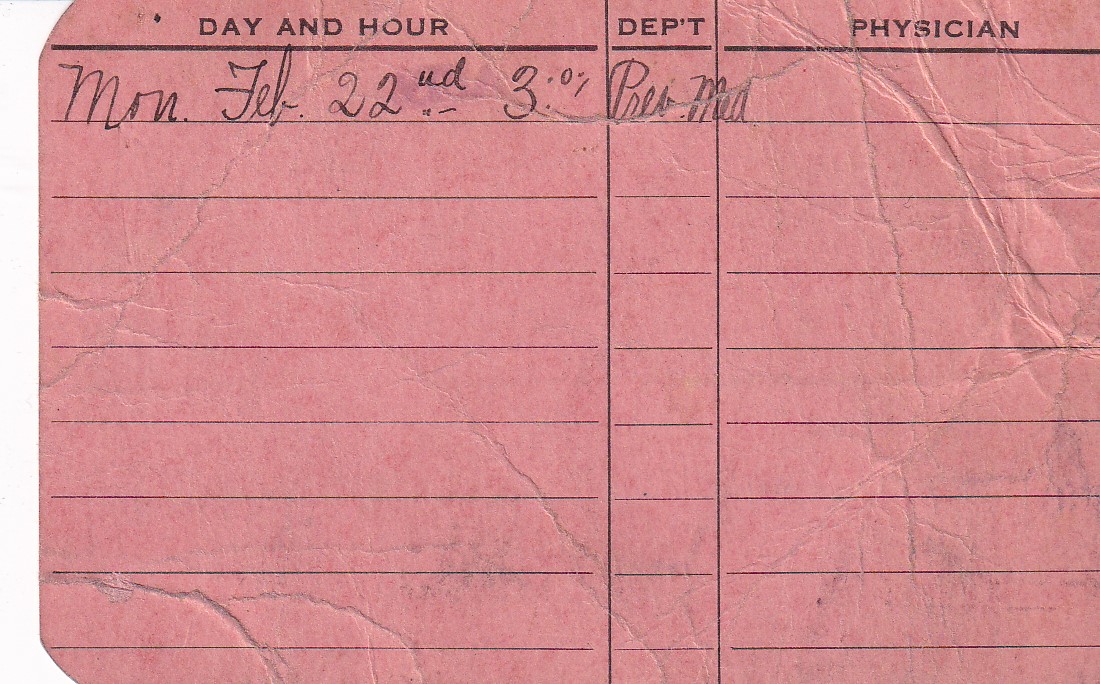 DAY AND HOUR DEP'T PHYSICIAN
Mon. Feb. 22nd 3:00 Prev. Med